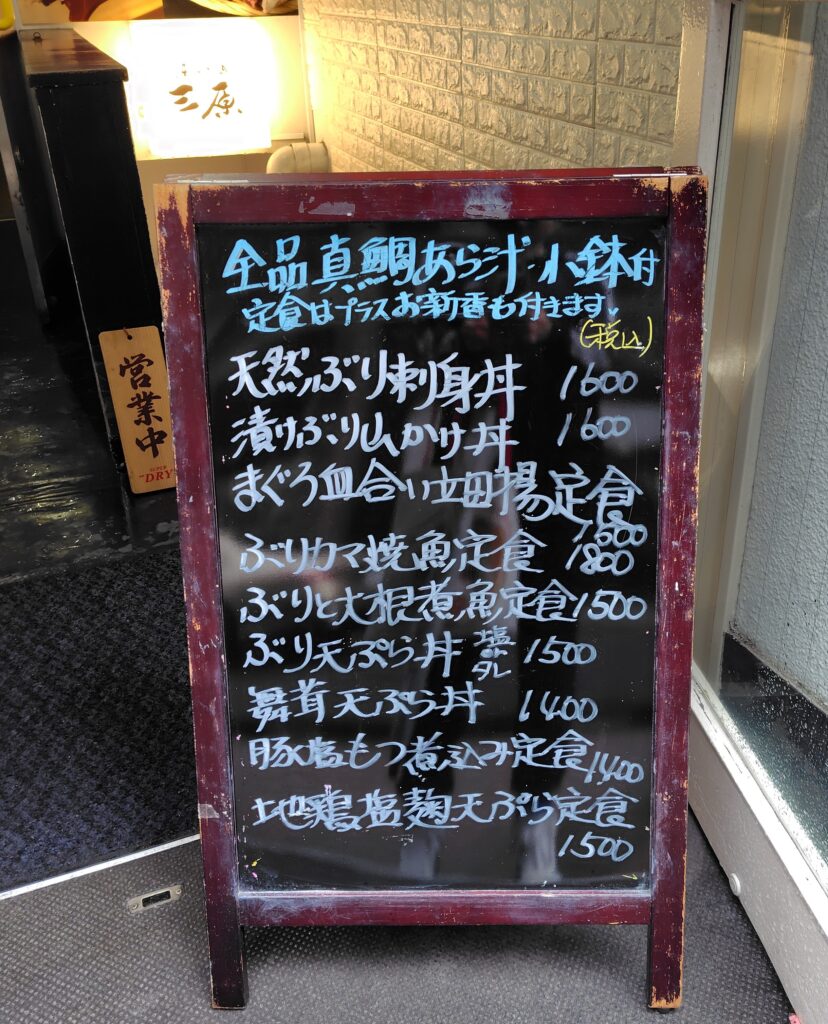 三原
営業中
SUPER
"DRY"
全品真鯛あら汁・小鉢付
定食はプラスお新香も付きます。
(税込)
天然ぶり刺身丼 1600
漬けぶり山かけ丼 1600
まぐろ血合い立田揚定食
1500
ぶりカマ焼魚定食 1800
ぶりと大根煮魚定食 1500
ぶり天ぷら丼 塩orタレ 1500
舞茸天ぷら丼 1400
豚塩もつ煮込み定食 1400
地鶏塩麹天ぷら定食
1500